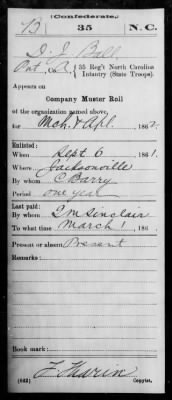 (Confederate.)
B 35 N.C.
D. J. Ball
Pvt, Co. A, 35 Reg't North Carolina
Infantry (State Troops).
Appears on
Company Muster Roll
of the organization named above,
for Mch & Apl, 1862.
Enlisted:
When Sept 6, 1861.
Where Jacksonville
By whom C Barry
Period one year
Last paid:
By whom I M Sinclair
To what time March 1, 186 .
Present or absent Present
Remarks:
Book mark:
(642) Copyist.